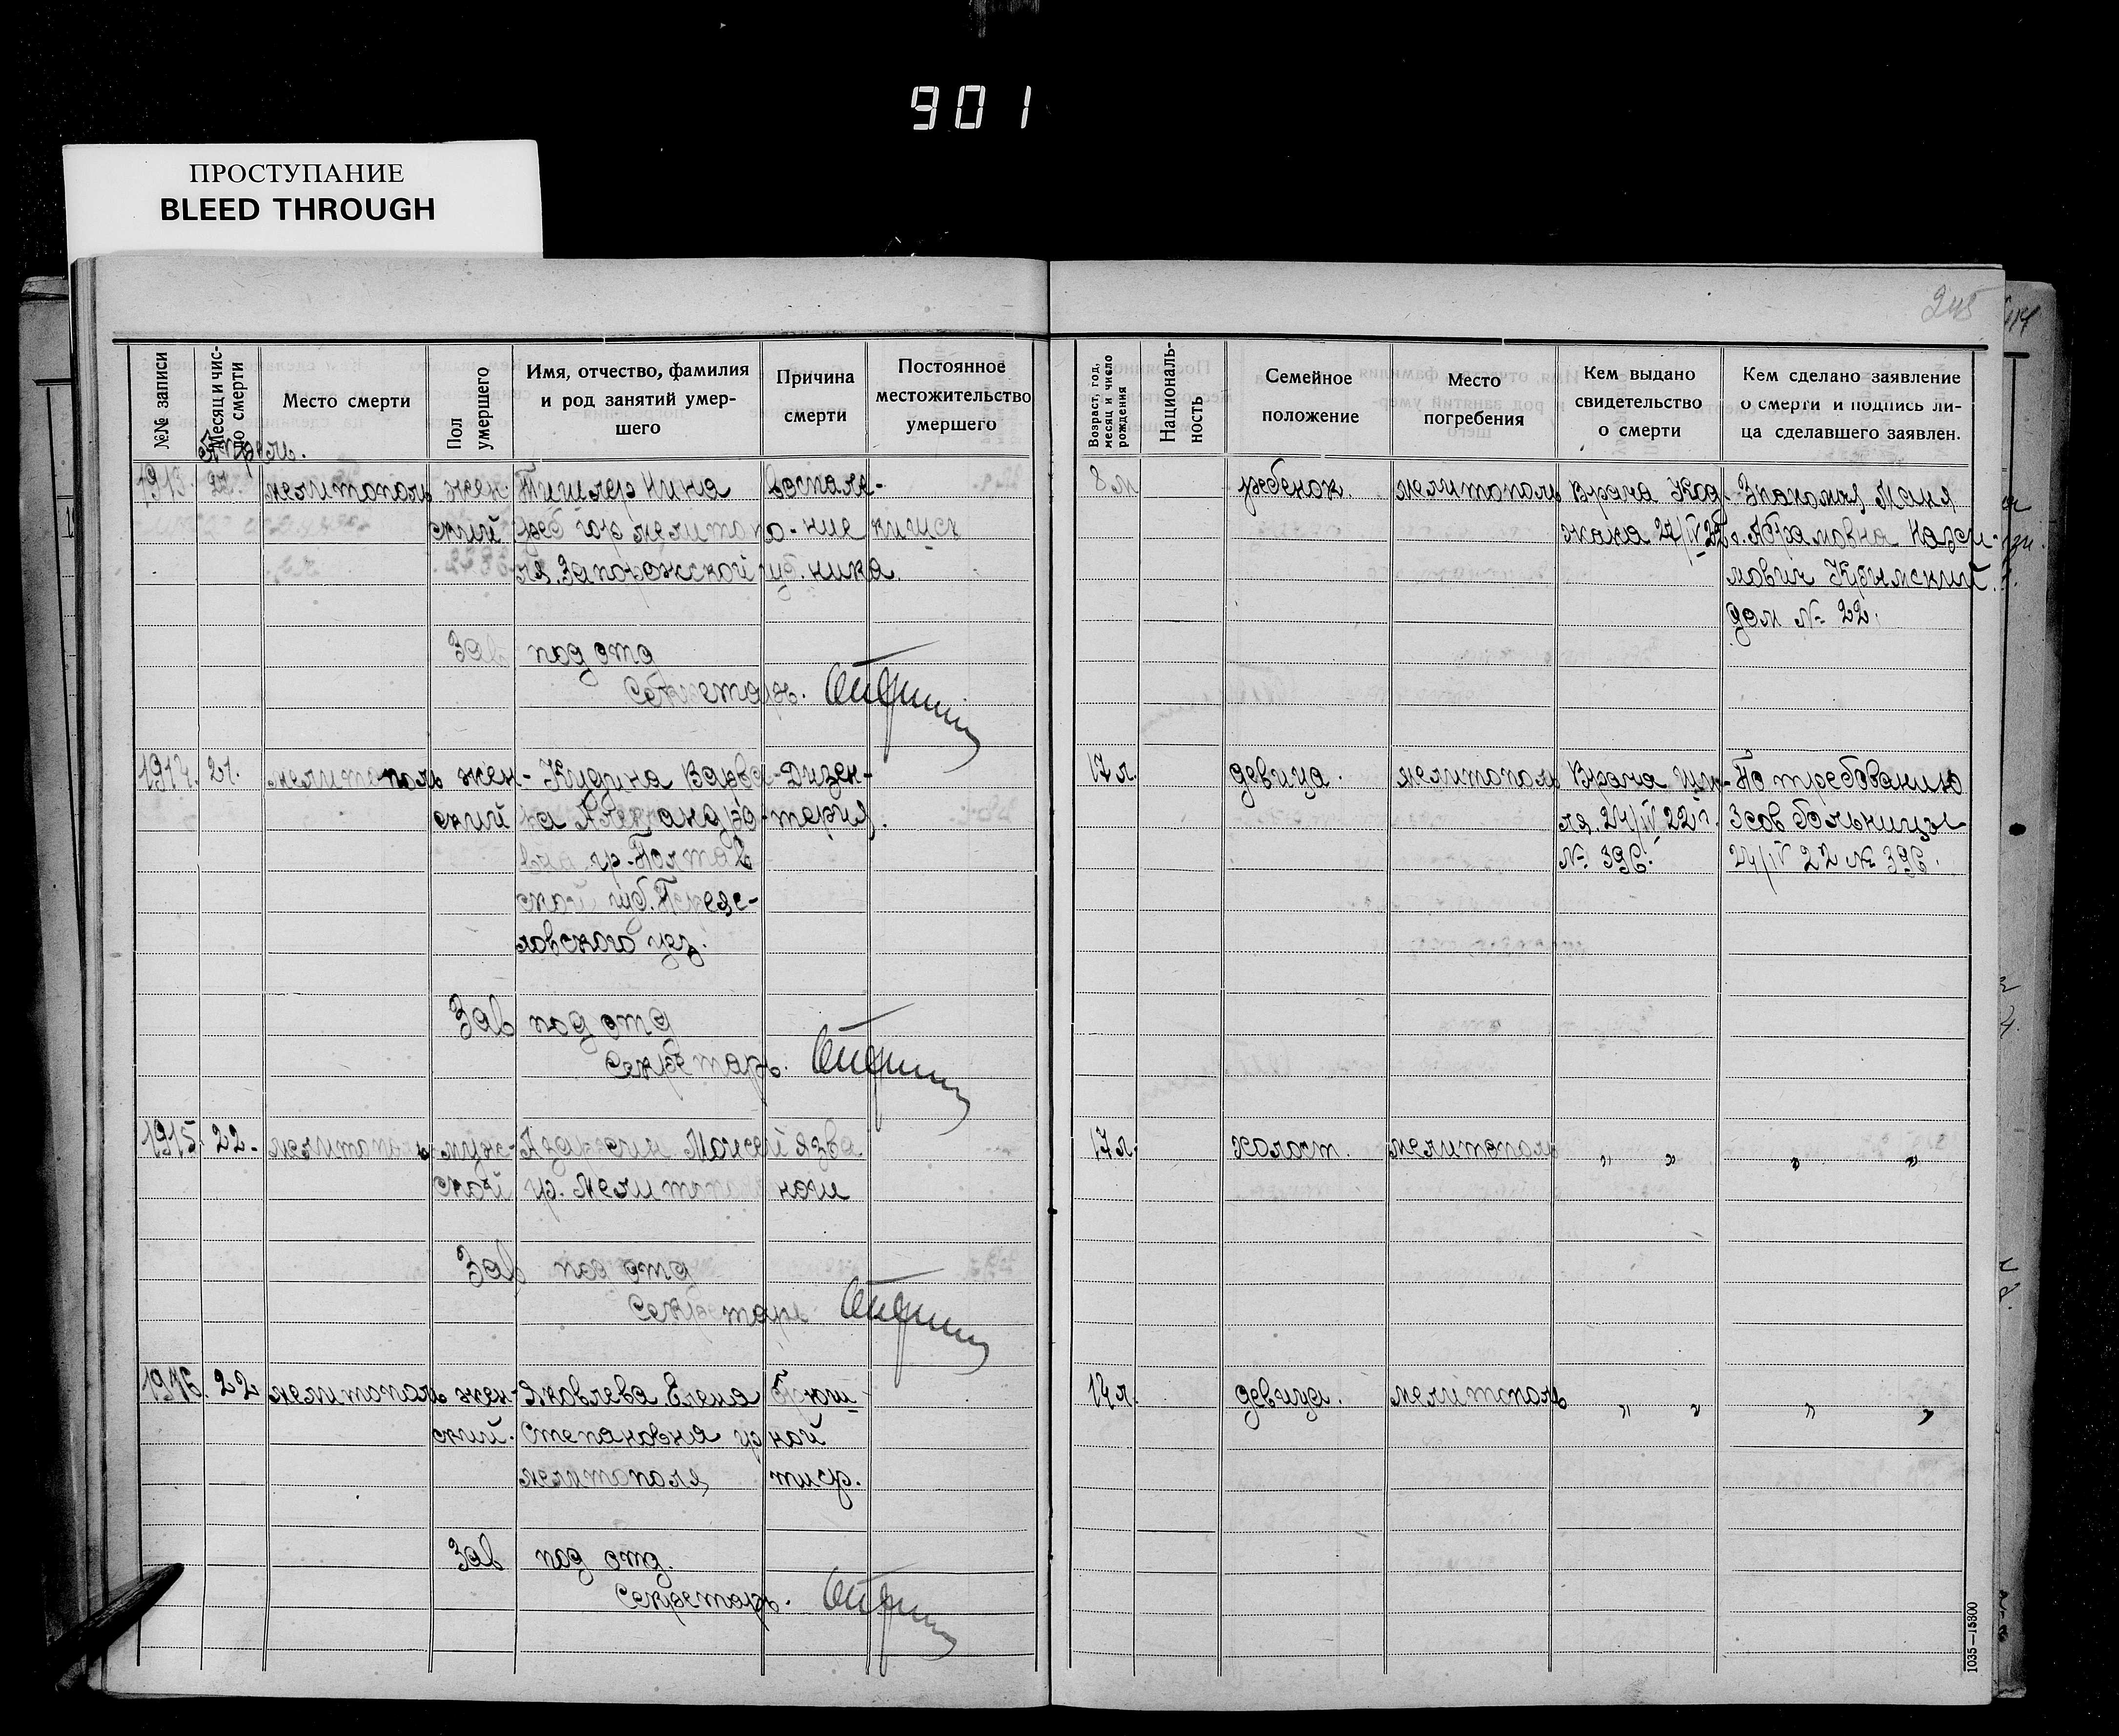 901
ПРОСТУПАНИЕ
BLEED THROUGH
245
№№ записи
Месяц и чис-
ло смерти
Место смерти
Пол
умершего
Имя, отчество, фамилия
и род занятий умер-
шего
Причина
смерти
Постоянное
местожительство
умершего
Возраст, год,
месяц и число
рождения
Националь-
ность
Семейное
положение
Место
погребения
Кем выдано
свидетельство
о смерти
Кем сделано заявление
о смерти и подпись ли-
ца сделавшего заявлен.
Апрель.
1913. мелитополь жен- Тишлер Нина Воспале-
ский гр мелитопо- ние кишеч
ля. Запорожской губ. ника.
8 м ребенок. мелитополь Врача Знакомая Маня
Абрамовна
Крымский
дом № 22.
Зав под отд
Секретарь.
1914. 21. мелитополь жен- Кудина Варва- Дизен-
ский ра Александро- терия.
вна гр. Полтав
ской губ.
ловского уез.
17 л. девица. мелитополь Врача По требованию
24/IV 22 г. Зав больницы
№ 396. 24/IV 22 № 396.
Зав под отд
Секретарь.
1915. 22. мелитополь муж- Моисей язва
ской гр. Мелитополя ноги
17 л. холост. мелитополь „ „ „ „
Зав под отд
Секретарь
1916. 22 мелитополь жен- Яковлева Елена Брюш
ский. Степановна гр ной
мелитополя тиф.
14 л. девица. мелитополь „ „ „ „
Зав под отд.
Секретарь.
1035—15800